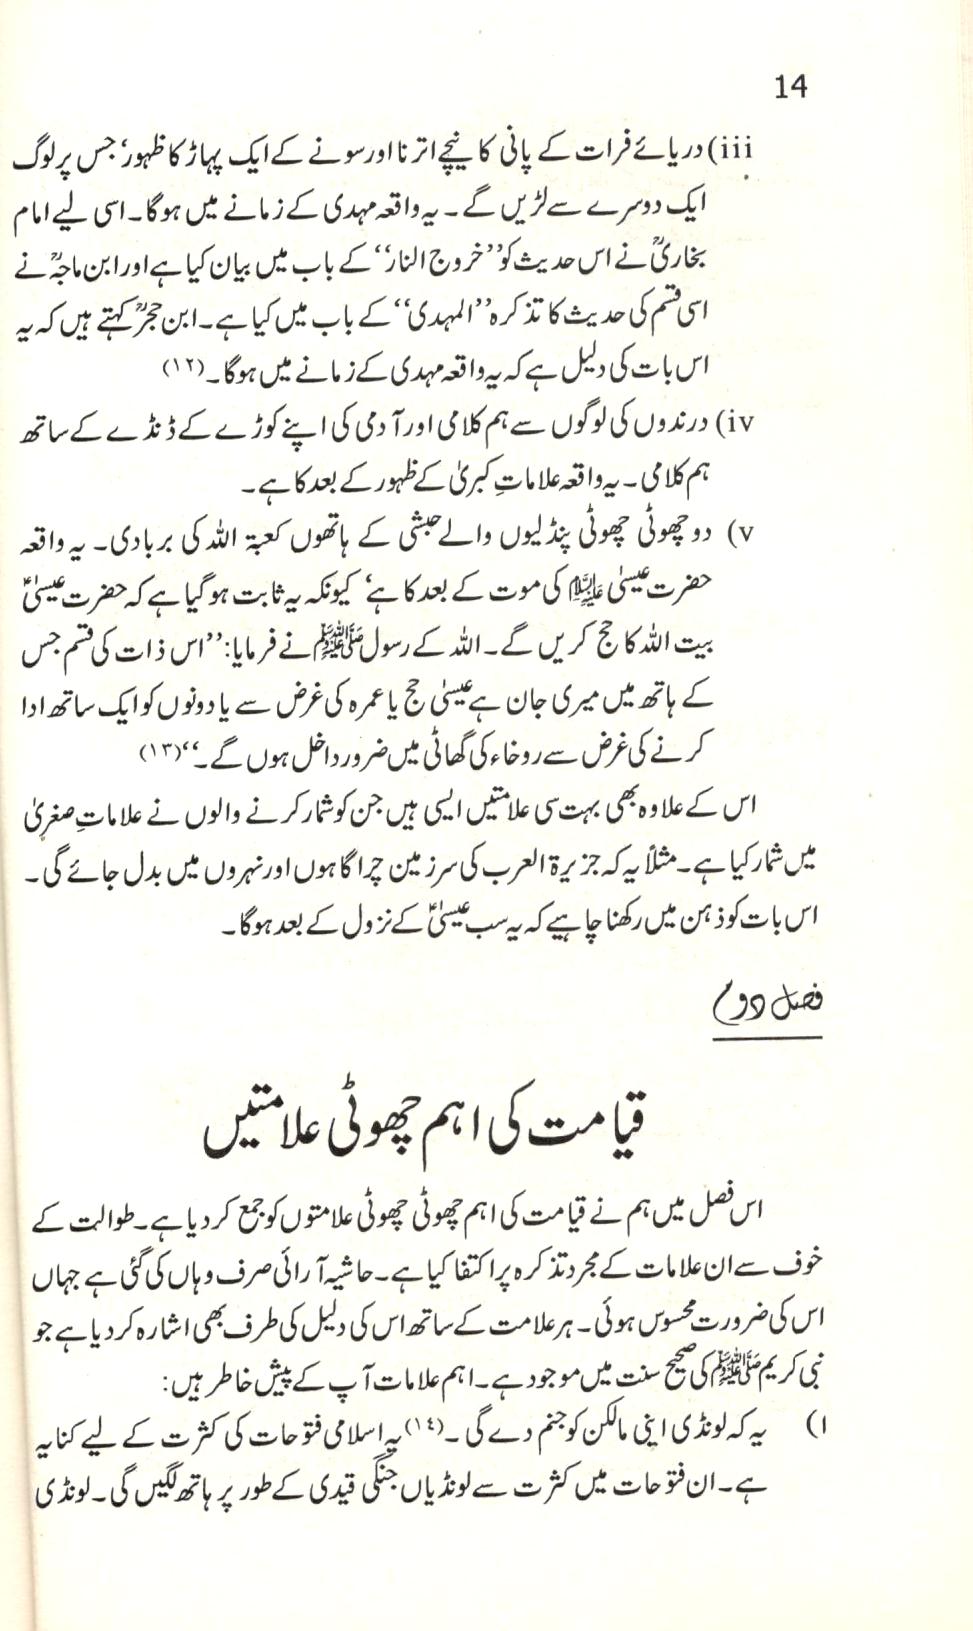 14
iii) دریائے فرات کے پانی کا نیچے اترنا اور سونے کے ایک پہاڑ کا ظہور‘ جس پر لوگ
ایک دوسرے سے لڑیں گے۔ یہ واقعہ مہدی کے زمانے میں ہوگا۔ اسی لیے امام
بخاریؒ نے اس حدیث کو ’’خروج النار‘‘ کے باب میں بیان کیا ہے اور ابن ماجہؒ نے
اسی قسم کی حدیث کا تذکرہ ’’المہدی‘‘ کے باب میں کیا ہے۔ ابن حجرؒ کہتے ہیں کہ یہ
اس بات کی دلیل ہے کہ یہ واقعہ مہدی کے زمانے میں ہوگا۔(۱۲)
iv) درندوں کی لوگوں سے ہم کلامی اور آدمی کی اپنے کوڑے کے ڈنڈے کے ساتھ
ہم کلامی۔ یہ واقعہ علاماتِ کبریٰ کے ظہور کے بعد کا ہے۔
v) دو چھوٹی چھوٹی پنڈلیوں والے حبشی کے ہاتھوں کعبۃ اللہ کی بربادی۔ یہ واقعہ
حضرت عیسیٰ علیہ السلام کی موت کے بعد کا ہے‘ کیونکہ یہ ثابت ہو گیا ہے کہ حضرت عیسیٰؑ
بیت اللہ کا حج کریں گے۔ اللہ کے رسول ﷺ نے فرمایا: ’’اس ذات کی قسم جس
کے ہاتھ میں میری جان ہے عیسیٰ حج یا عمرہ کی غرض سے یا دونوں کو ایک ساتھ ادا
کرنے کی غرض سے روخاء کی گھاٹی میں ضرور داخل ہوں گے۔‘‘(۱۳)
اس کے علاوہ بھی بہت سی علامتیں ایسی ہیں جن کو شمار کرنے والوں نے علاماتِ صغریٰ
میں شمار کیا ہے۔ مثلاً یہ کہ جزیرۃ العرب کی سرزمین چراگاہوں اور نہروں میں بدل جائے گی۔
اس بات کو ذہن میں رکھنا چاہیے کہ یہ سب عیسیٰؑ کے نزول کے بعد ہوگا۔
فصل دوم
قیامت کی اہم چھوٹی علامتیں
اس فصل میں ہم نے قیامت کی اہم چھوٹی چھوٹی علامتوں کو جمع کر دیا ہے۔ طوالت کے
خوف سے ان علامات کے مجرد تذکرہ پر اکتفا کیا ہے۔ حاشیہ آرائی صرف وہاں کی گئی ہے جہاں
اس کی ضرورت محسوس ہوئی۔ ہر علامت کے ساتھ اس کی دلیل کی طرف بھی اشارہ کر دیا ہے جو
نبی کریم ﷺ کی صحیح سنت میں موجود ہے۔ اہم علامات آپ کے پیش خاطر ہیں:
۱) یہ کہ لونڈی اپنی مالکن کو جنم دے گی۔(۱٤) یہ اسلامی فتوحات کی کثرت کے لیے کنایہ
ہے۔ ان فتوحات میں کثرت سے لونڈیاں جنگی قیدی کے طور پر ہاتھ لگیں گی۔ لونڈی